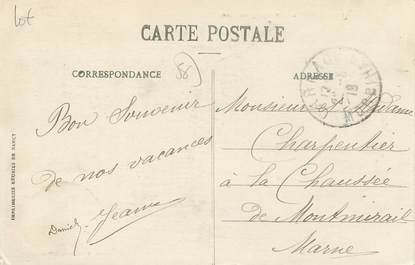 Lot
CARTE POSTALE
CORRESPONDANCE
58
ADRESSE
Bon Souvenir
de nos vacances
Daniel. Jeanne
Monsieur & Madame
Charpentier
à la Chaussée
de Montmirail
Marne
IMPRIMERIES RÉUNIES DE NANCY